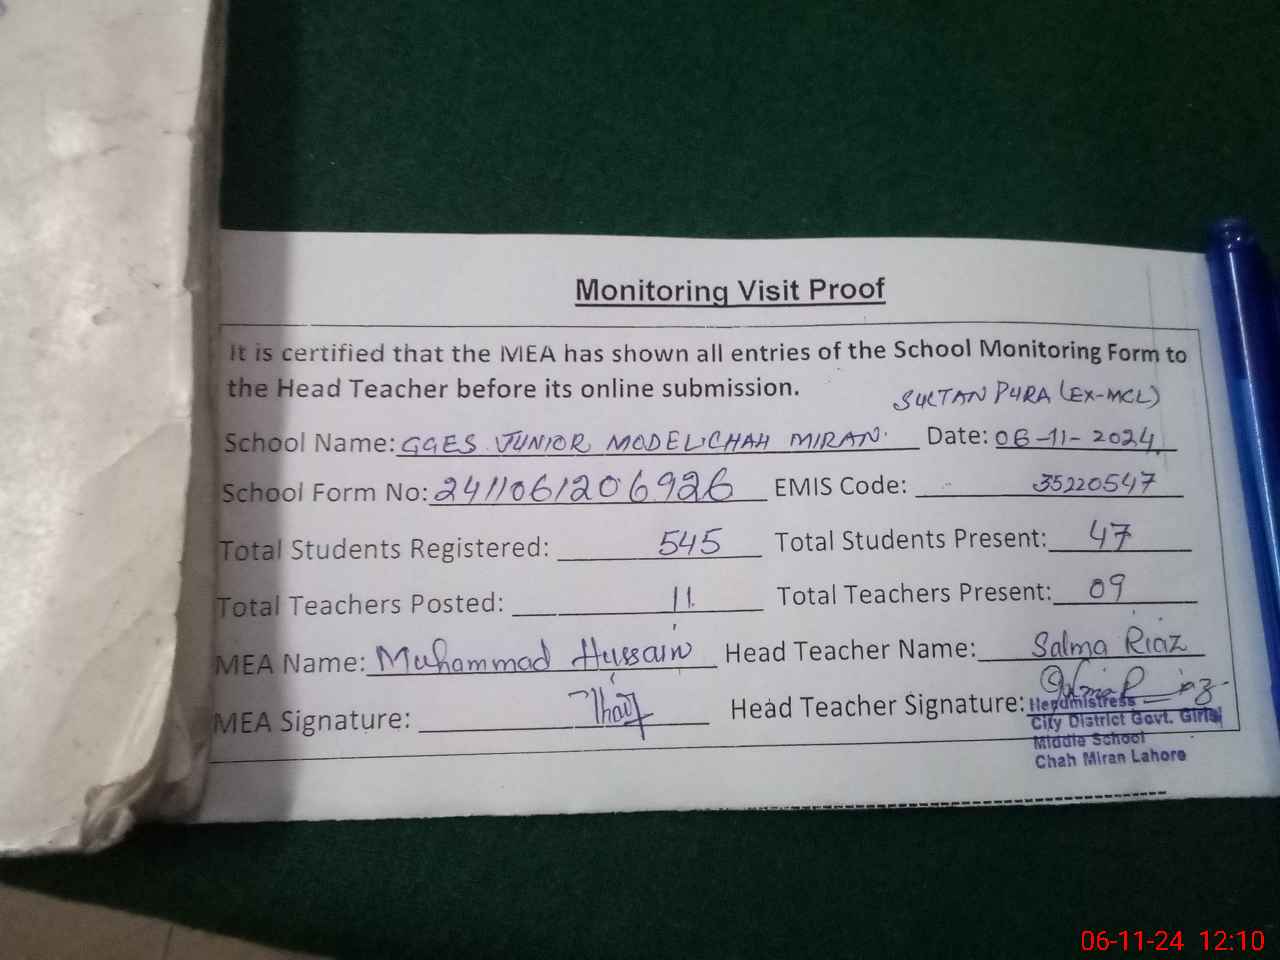 Monitoring Visit Proof
It is certified that the MEA has shown all entries of the School Monitoring Form to
the Head Teacher before its online submission.
SULTAN PURA (EX-MCL)
School Name: GGES JUNIOR MODEL CHAH MIRAN. Date: 06-11-2024
School Form No: 241106120 6926 EMIS Code: 35220547
Total Students Registered: 545 Total Students Present: 47
Total Teachers Posted: 11 Total Teachers Present: 09
MEA Name: Muhammad Hussain Head Teacher Name: Salma Riaz
MEA Signature: Head Teacher Signature: Salma Riaz
Headmistress
City District Govt. Girls
Middle School
Chah Miran Lahore
06-11-24 12:10